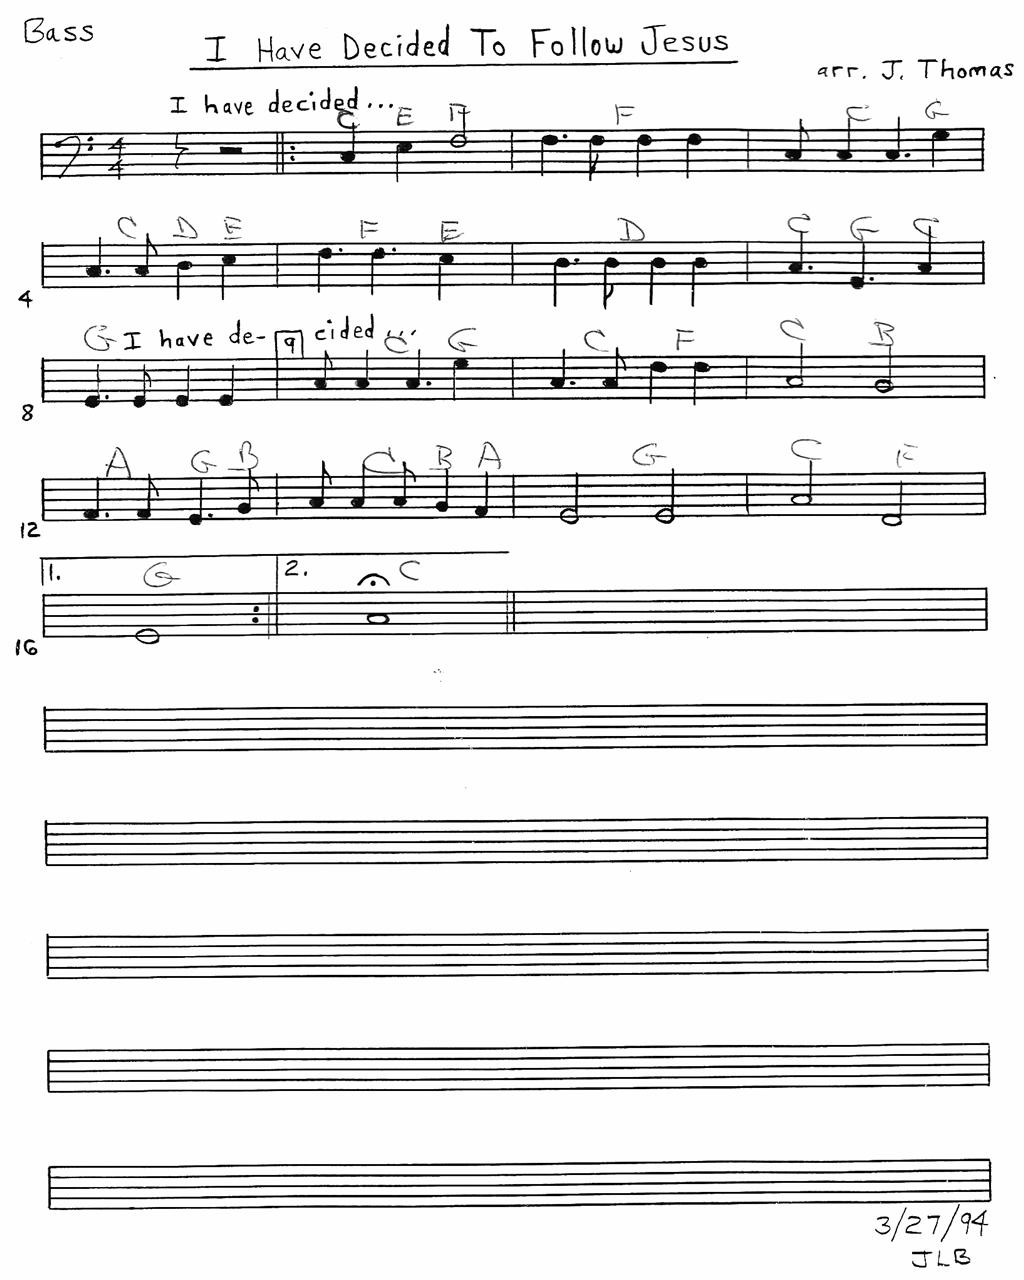 Bass
I Have Decided To Follow Jesus
arr. J. Thomas
I have decided...
C E F F C G
4
4
C D E F E D C G C
4
G I have de- 9 cided... C G C F C B
8
A G B C B A G C F
12
1. G 2. C
16
3/27/94
JLB